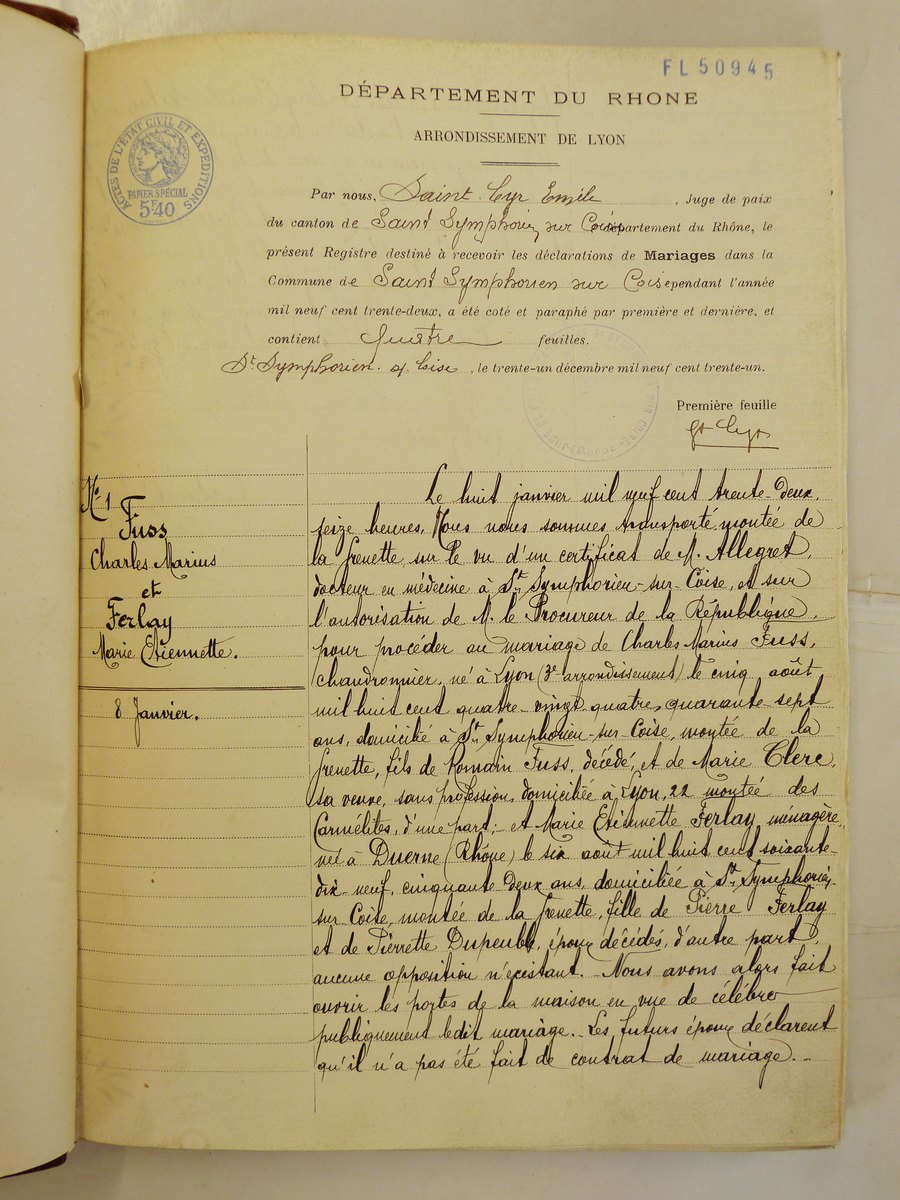 FL 50945
DÉPARTEMENT DU RHONE
ARRONDISSEMENT DE LYON
ACTES DE L'ÉTAT CIVIL ET EXPÉDITIONS
PAPIER SPÉCIAL
5F40
Par nous, Saint Cyr Emile, Juge de paix
du canton de Saint Symphorien sur Coise département du Rhône, le
présent Registre destiné à recevoir les déclarations de Mariages dans la
Commune de Saint Symphorien sur Coise pendant l'année
mil neuf cent trente-deux, a été coté et paraphé par première et dernière, et
contient quatre feuilles.
St Symphorien s/ Coise, le trente-un décembre mil neuf cent trente-un.
Première feuille
St Cyr
No 1
Fuss
Charles Marius
et
Ferlay
Marie Etiennette.
8 Janvier.
Le huit janvier mil neuf cent trente-deux,
seize heures, Nous nous sommes transporté montée de
la Grenette, sur le vu d'un certificat de M. Allegret,
docteur en médecine à St Symphorien-sur-Coise, et sur
l'autorisation de M. le Procureur de la République,
pour procéder au mariage de Charles Marius Fuss,
chaudronnier, né à Lyon (3e arrondissement) le cinq août
mil huit cent quatre-vingt quatre, quarante-sept
ans, domicilié à St Symphorien-sur-Coise, montée de la
Grenette, fils de Romain Fuss, décédé, et de Marie Clerc,
sa veuve, sans profession, domiciliée à Lyon, 22 montée des
Carmélites, d'une part; - et Marie Etiennette Ferlay, ménagère,
née à Duerne (Rhône) le six août mil huit cent soixante-
dix-neuf, cinquante deux ans, domiciliée à St Symphorien-
sur-Coise, montée de la Grenette, fille de Pierre Ferlay
et de Pierrette Dupeuble, époux décédés, d'autre part,
aucune opposition n'existant. - Nous avons alors fait
ouvrir les portes de la maison en vue de célébrer
publiquement ledit mariage. - Les futurs époux déclarent
qu'il n'a pas été fait de contrat de mariage. -